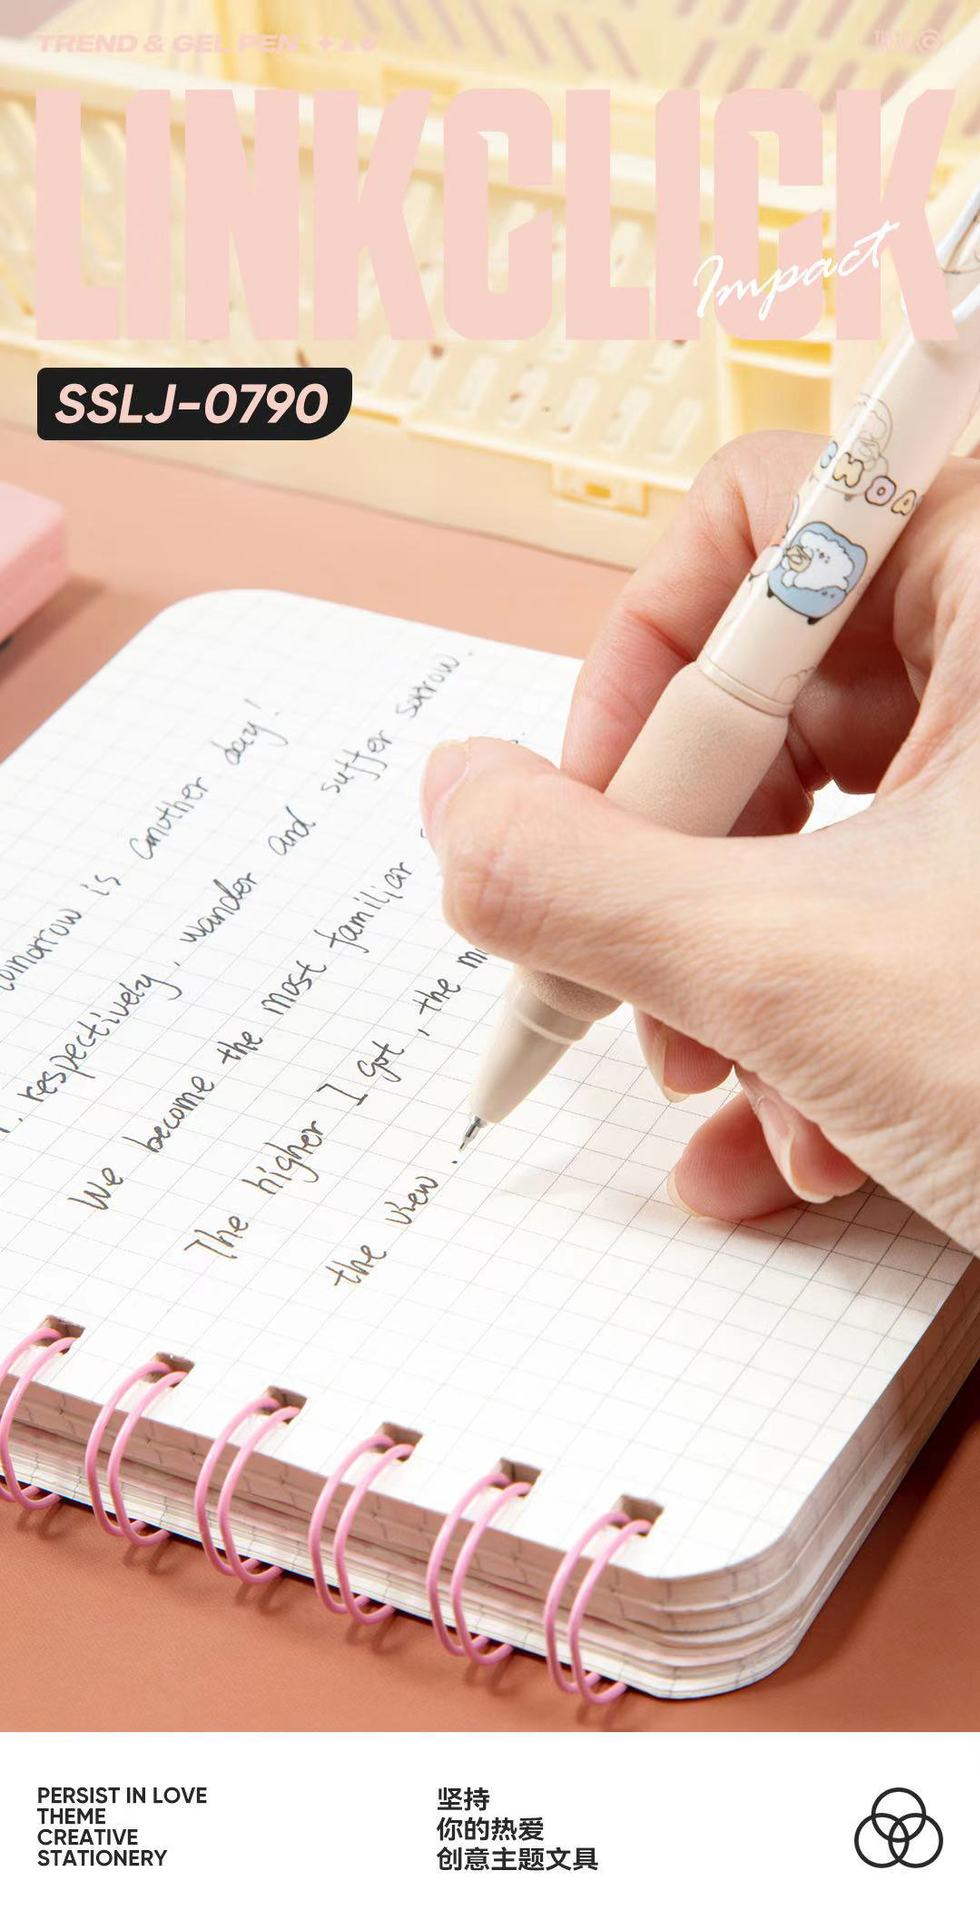 TREND & GEL PEN
LINKCLICK
Impact
SSLJ-0790
tomorrow is another day!
respectively, wander and suffer sorrow.
We become the most familiar
The higher I got, the
the view.
PERSIST IN LOVE
THEME
CREATIVE
STATIONERY
坚持
你的热爱
创意主题文具